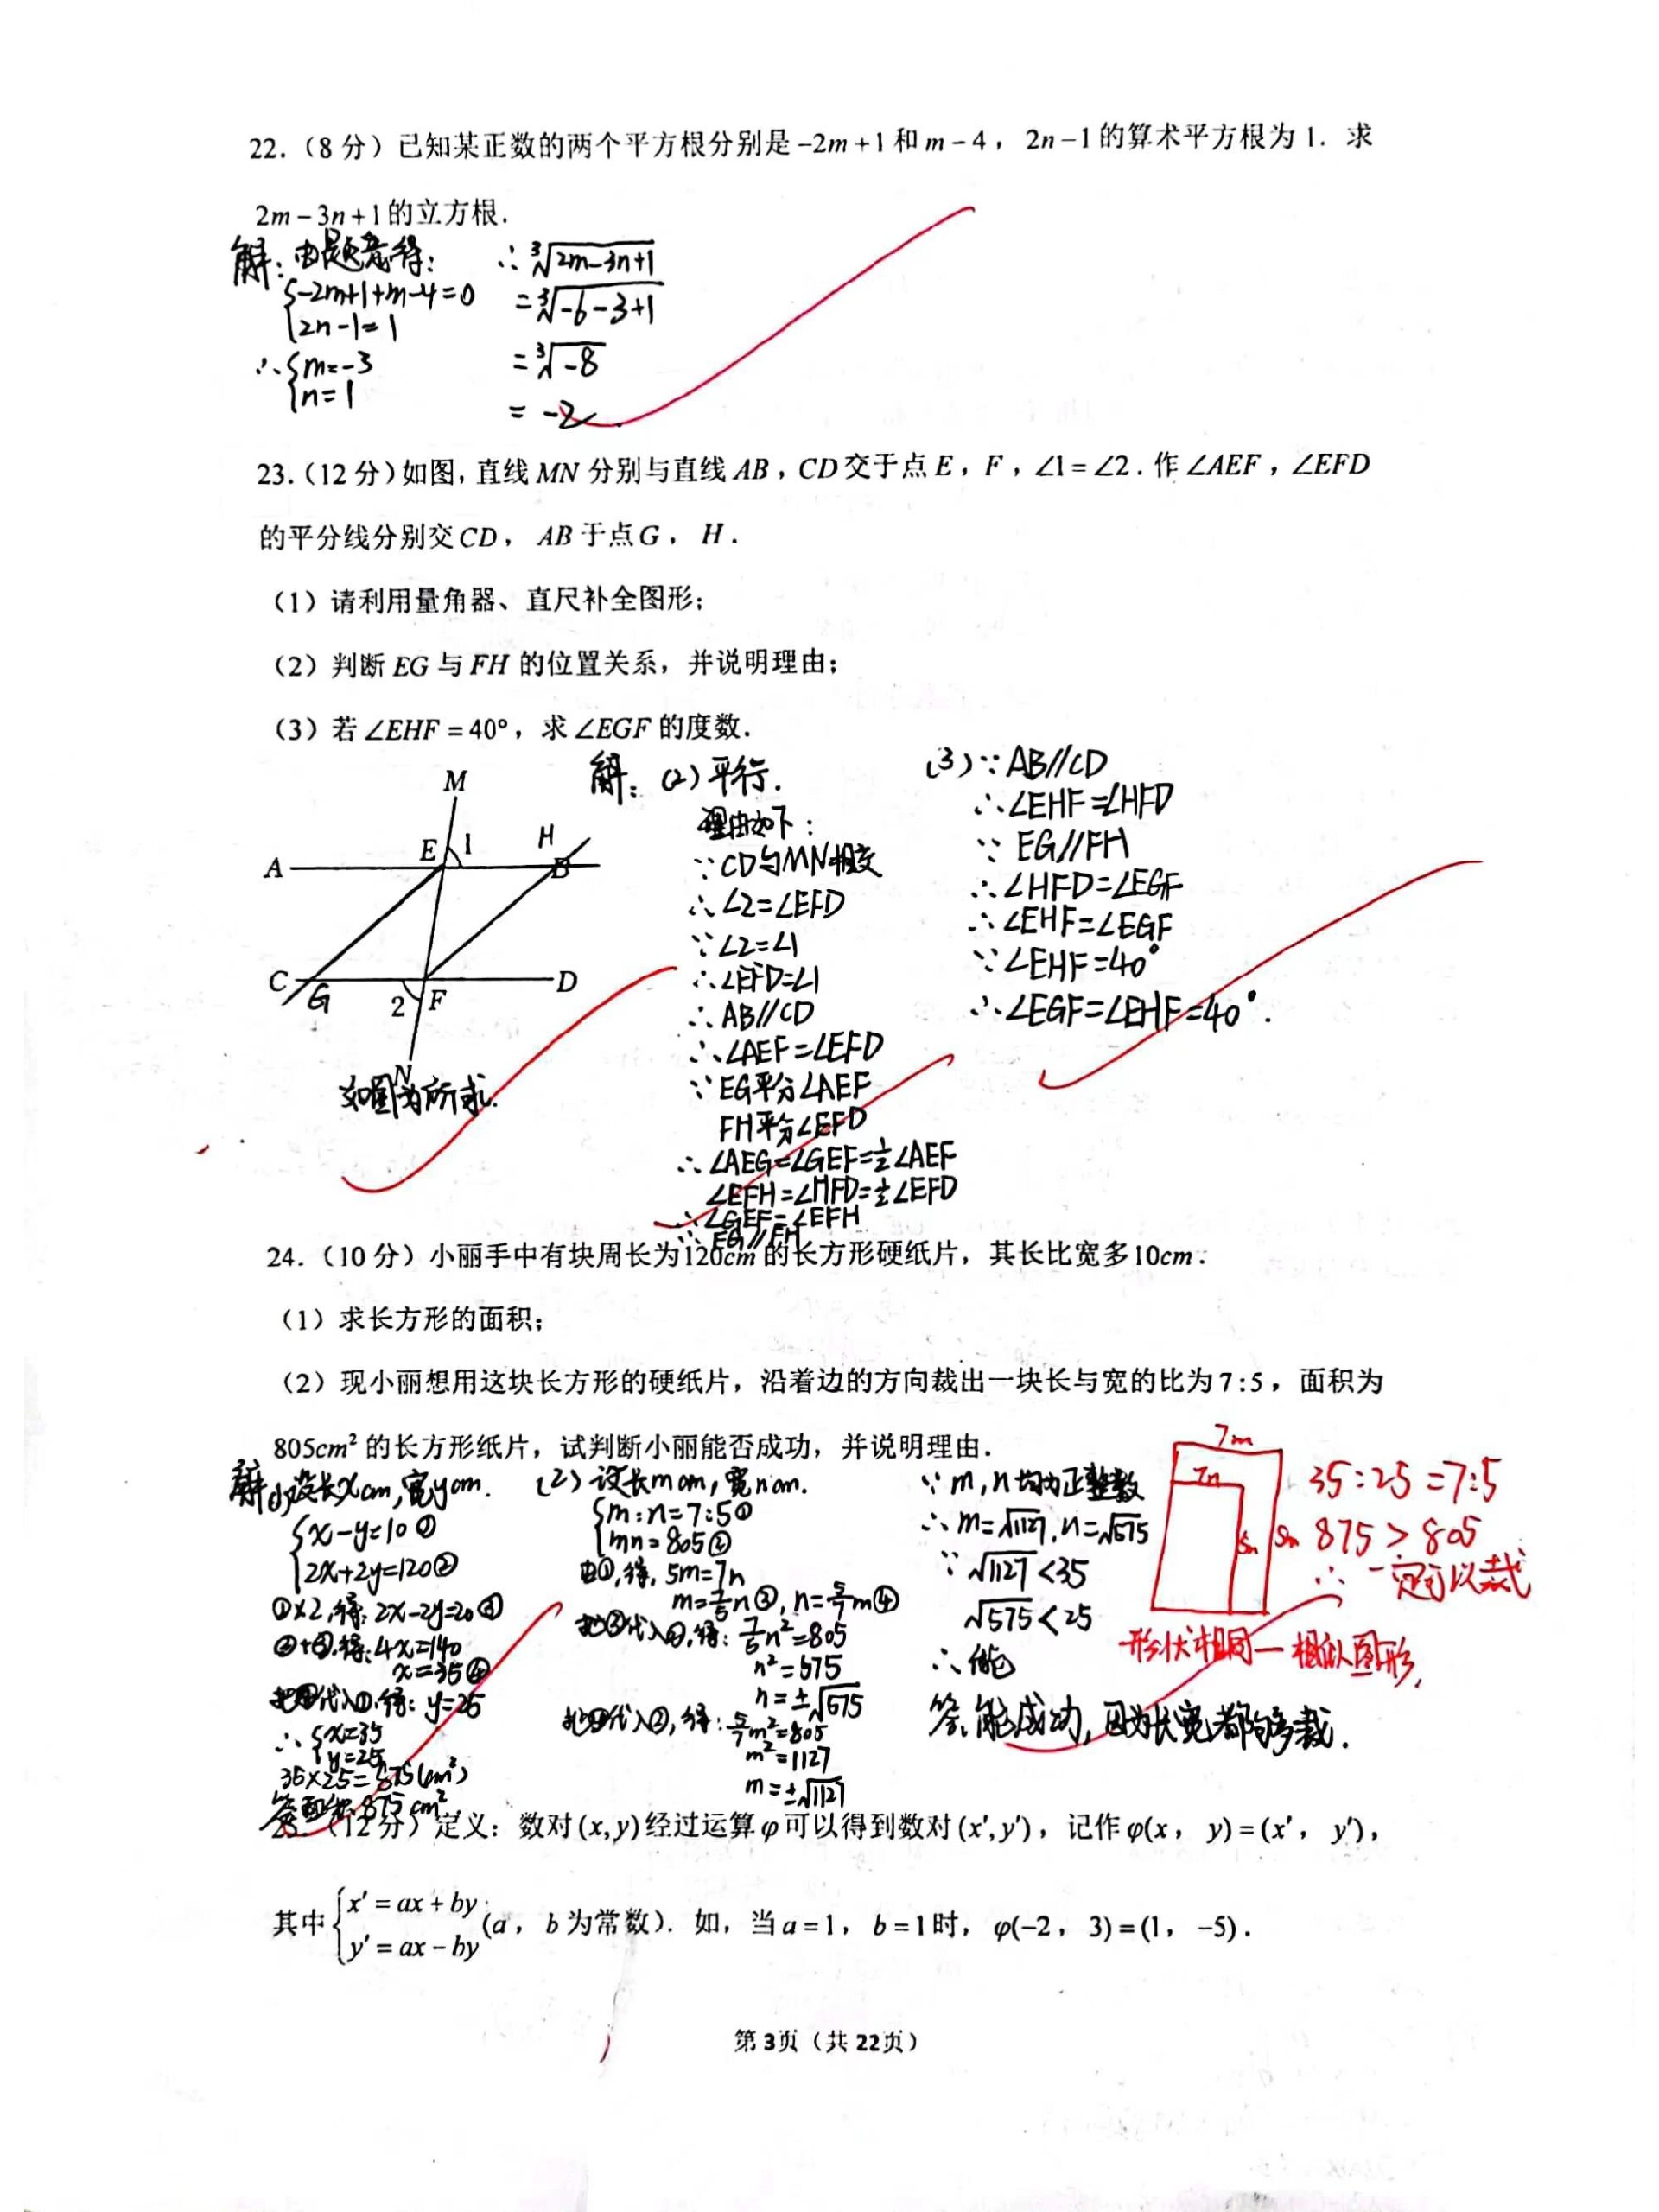 22.（8 分）已知某正数的两个平方根分别是 -2m+1 和 m-4，2n-1 的算术平方根为 1. 求
2m-3n+1 的立方根.
解：由题意得：
{-2m+1+m-4=0
{2n-1=1
∴{m=-3
{n=1
∴∛(2m-3n+1)
=∛(-6-3+1)
=∛(-8)
=-2.
23.（12 分）如图，直线 MN 分别与直线 AB，CD 交于点 E，F，∠1=∠2. 作 ∠AEF，∠EFD
的平分线分别交 CD，AB 于点 G，H.
（1）请利用量角器、直尺补全图形；
（2）判断 EG 与 FH 的位置关系，并说明理由；
（3）若 ∠EHF=40°，求 ∠EGF 的度数.
M
E 1 H
A B
C G 2 F D
N
如图为所求.
解：(2) 平行.
理由如下：
∵CD与MN相交
∴∠2=∠EFD
∵∠2=∠1
∴∠EFD=∠1
∴AB//CD
∴∠AEF=∠EFD
∵EG平分∠AEF
FH平分∠EFD
∴∠AEG=∠GEF=½∠AEF
∠EFH=∠HFD=½∠EFD
∴∠GEF=∠EFH
∴EG//FH
(3)∵AB//CD
∴∠EHF=∠HFD
∵EG//FH
∴∠HFD=∠EGF
∴∠EHF=∠EGF
∵∠EHF=40°
∴∠EGF=∠EHF=40°.
24.（10 分）小丽手中有块周长为120cm 的长方形硬纸片，其长比宽多10cm.
（1）求长方形的面积；
（2）现小丽想用这块长方形的硬纸片，沿着边的方向裁出一块长与宽的比为7:5，面积为
805cm² 的长方形纸片，试判断小丽能否成功，并说明理由.
解(1)设长xcm,宽ycm.
{x-y=10①
{2x+2y=120②
①×2,得：2x-2y=20③
②+③,得：4x=140
x=35④
把④代入①,得：y=25
∴{x=35
{y=25
35×25=875(cm²)
答：面积为875cm².
(2)设长mcm,宽ncm.
{m:n=7:5①
{mn=805②
由①,得,5m=7n
m=7/5n③,n=5/7m④
把③代入②,得：7/5n²=805
n²=575
n=±√575
把④代入②,得：5/7m²=805
m²=1127
m=±√1127
∵m,n均为正整数
∴m=√1127,n=√575
∵√1127<35
√575<25
∴能
答:能成功,因为长宽都够裁.
7m
7n
5n 5m
35:25=7:5
875>805
∴一定可以裁
形状相同—相似图形.
25.（12 分）定义：数对 (x,y) 经过运算 φ 可以得到数对 (x',y')，记作 φ(x，y)=(x'，y')，
其中{x'=ax+by
{y'=ax-by (a，b 为常数). 如，当 a=1，b=1时，φ(-2，3)=(1，-5).
第 3页（共 22页）